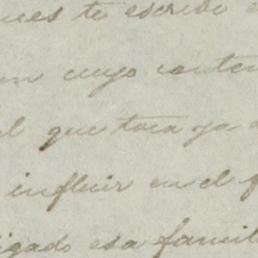 ues te escribe
en cuyo conten
l que toca ya
influir en el f
igado esa famil